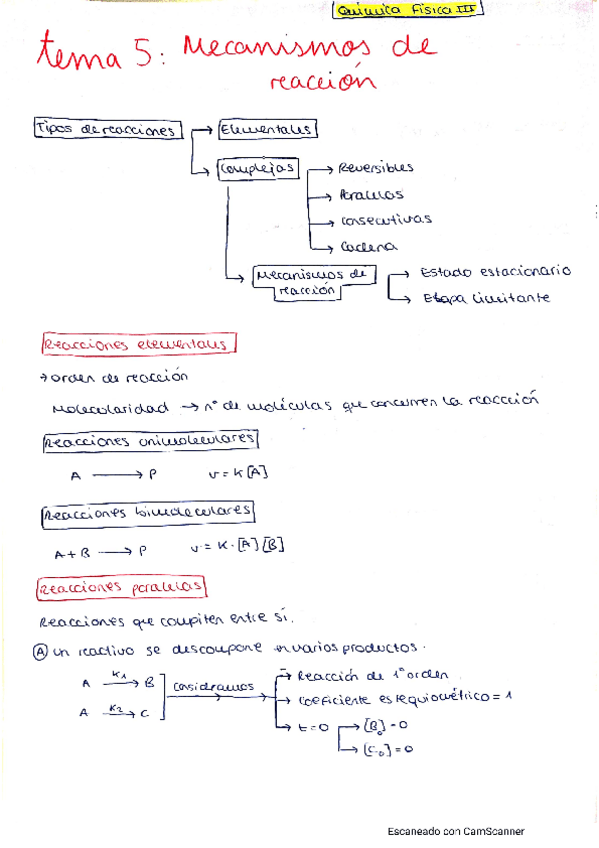 Química Física III
tema 5: Mecanismos de
reacción
Tipos de reacciones → Elementales
→ Complejas → Reversibles
→ Paralelas
→ Consecutivas
→ Cadena
→ Mecanismos de reacción → Estado estacionario
→ Etapa limitante
Reacciones elementales
→ orden de reacción
Molecularidad → nº de moléculas que concurren la reacción
Reacciones unimoleculares
A → P v = K[A]
Reacciones bimoleculares
A + B → P v = K·[A][B]
Reacciones paralelas
Reacciones que compiten entre sí.
Ⓐ Un reactivo se descompone en varios productos.
A K1→ B Consideramos → Reacción de 1º orden
A K2→ C → Coeficiente estequiométrico = 1
→ t = 0 → [B0] = 0
→ [C0] = 0
Escaneado con CamScanner